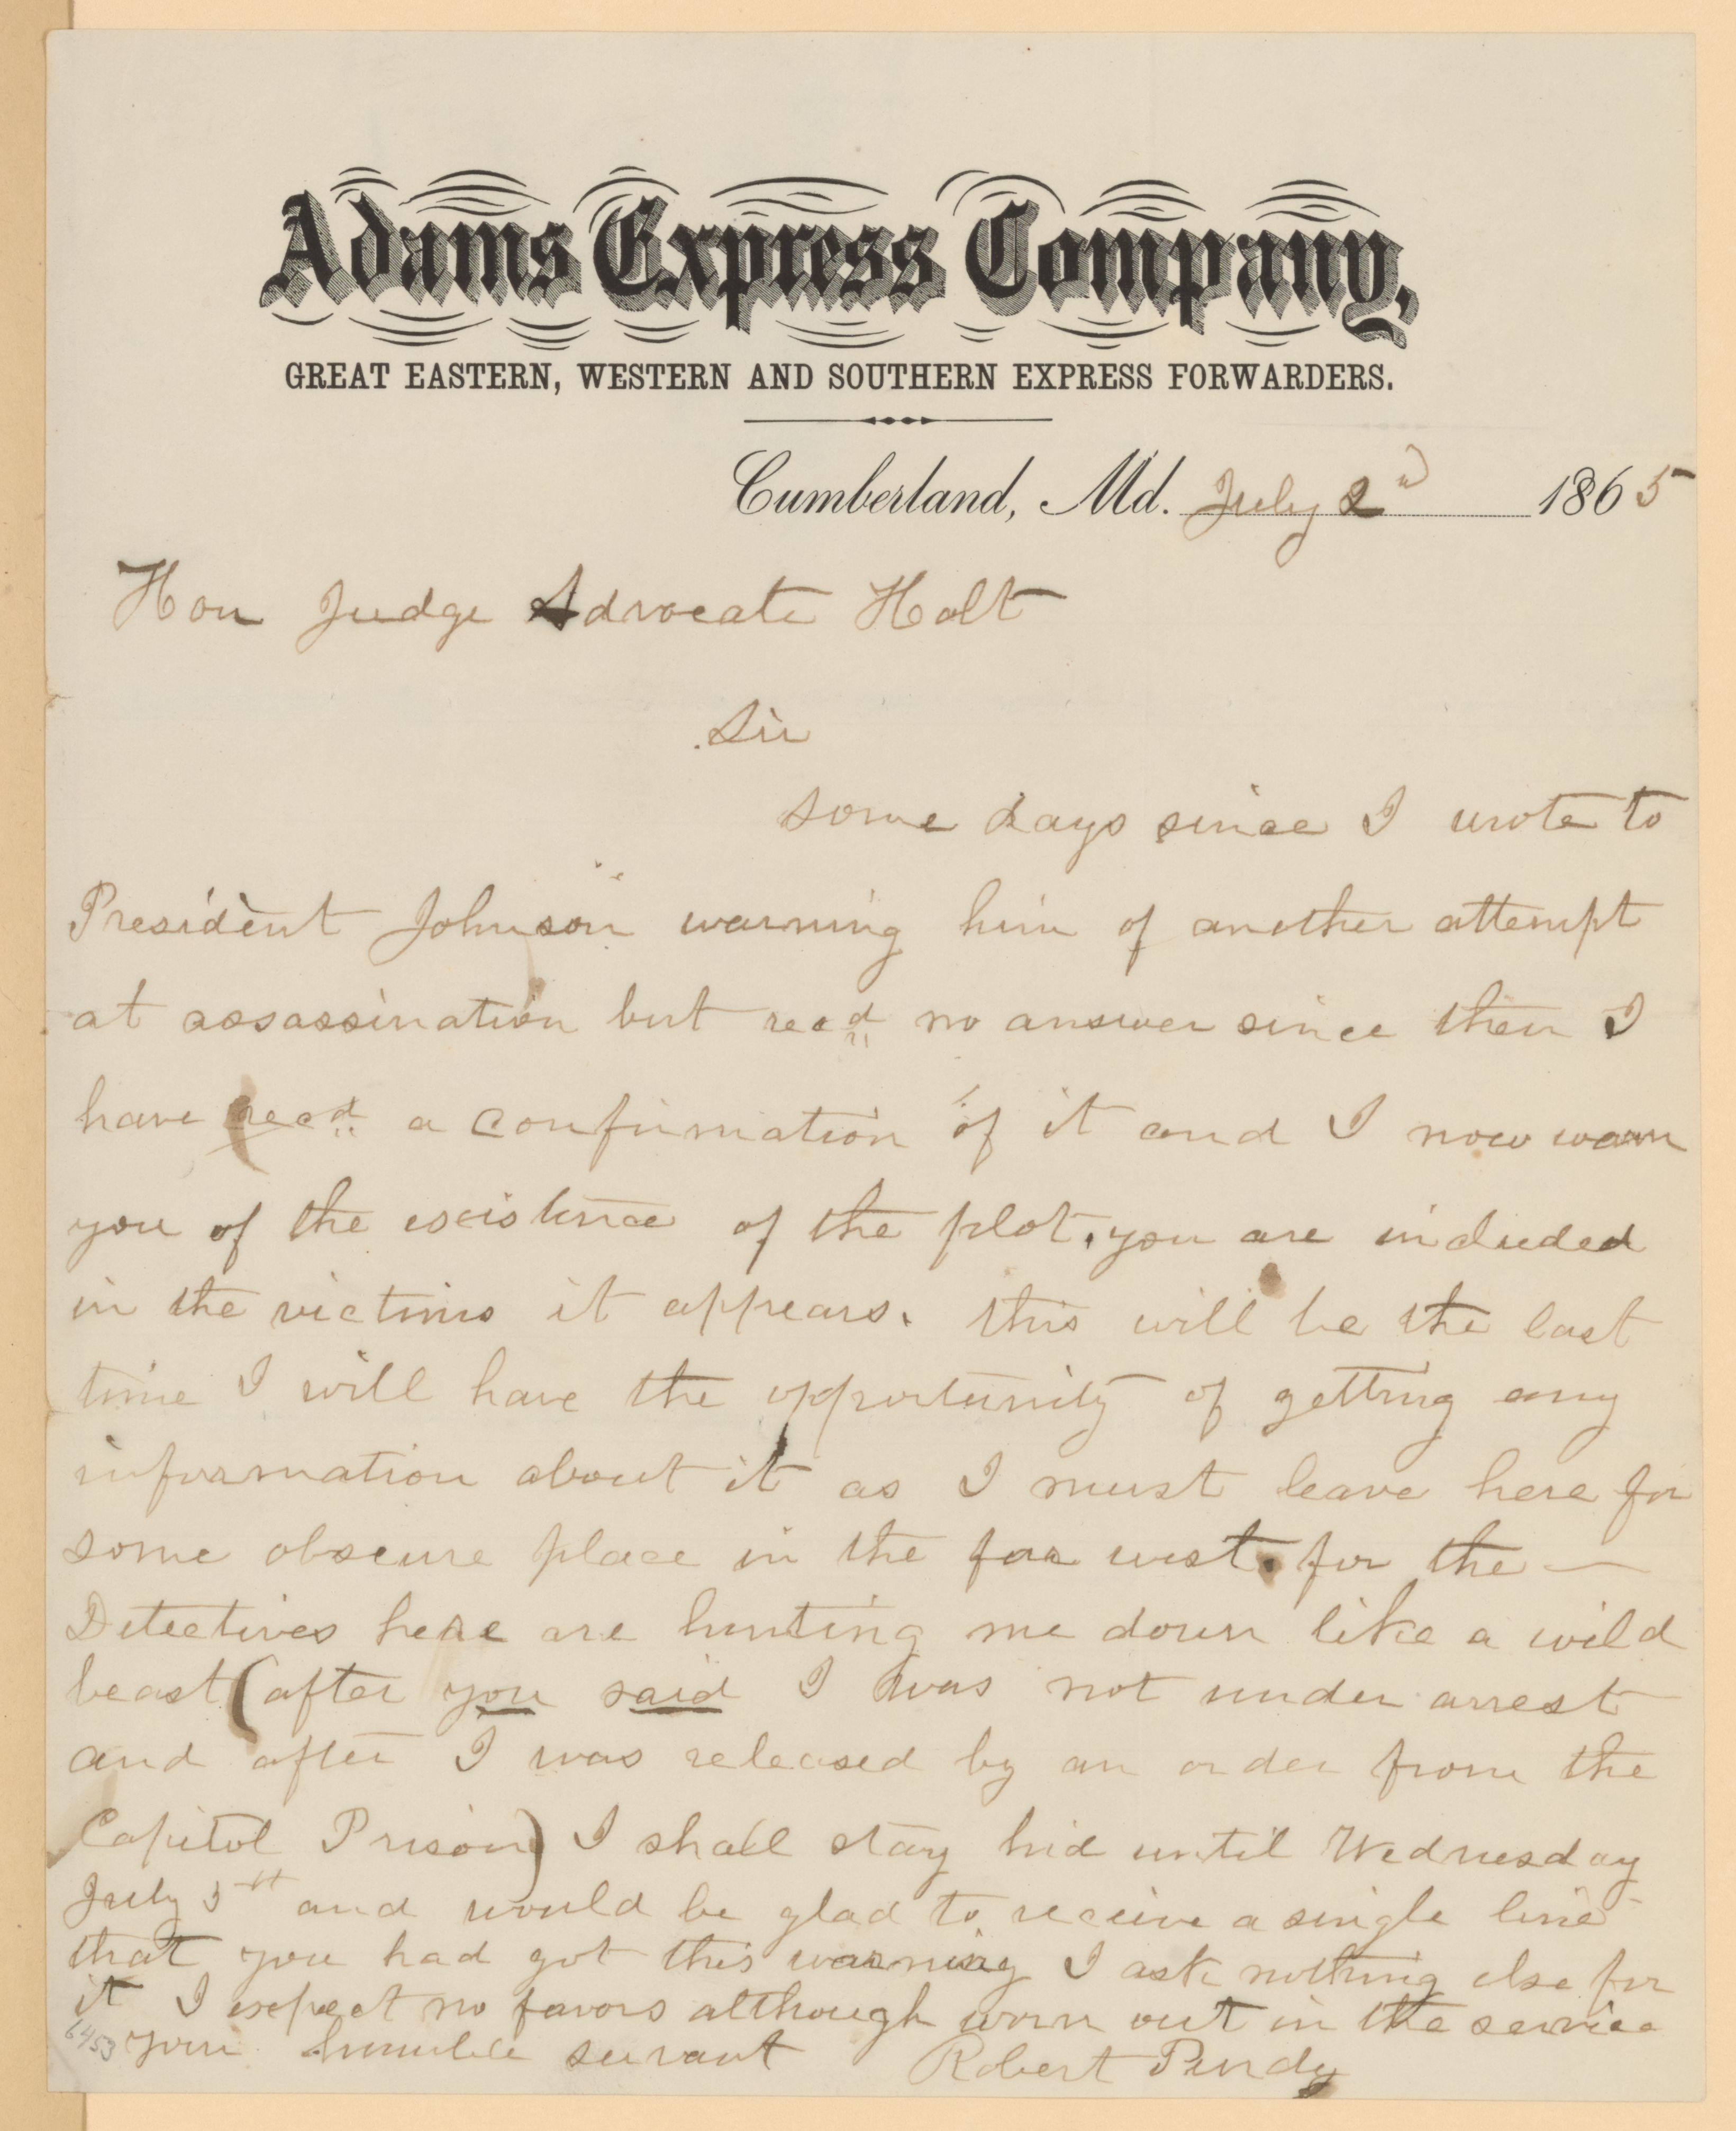 Adams Express Company,
GREAT EASTERN, WESTERN AND SOUTHERN EXPRESS FORWARDERS.
Cumberland, Md. July 2d 1865
Hon Judge Advocate Holt
Sir
some days since I wrote to
President Johnson warning him of another attempt
at assassination but recd no answer since then I
have recd a confirmation of it and I now warn
you of the existence of the plot. you are included
in the victims it appears. this will be the last
time I will have the opportunity of getting any
information about it as I must leave here for
some obscure place in the far west. for the —
Detectives here are hunting me down like a wild
beast (after you said I was not under arrest
and after I was released by an order from the
Capitol Prison) I shall stay hid until Wednesday
July 5th and would be glad to receive a single line
that you had got this warning I ask nothing else for
it I expect no favors although worn out in the service
6453 your humble servant Robert Purdy